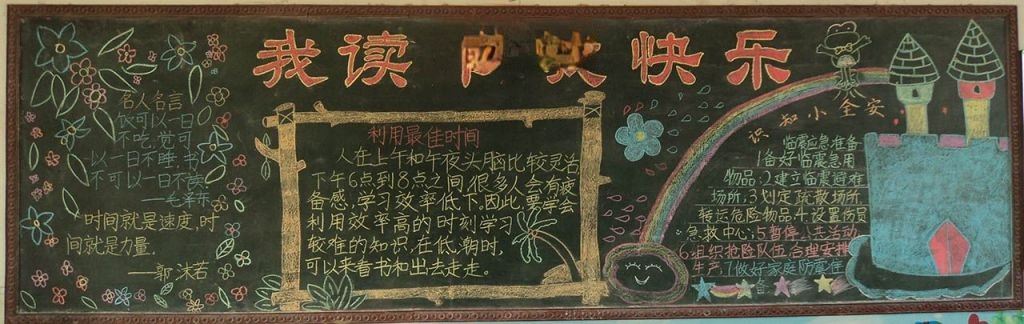 我读 快乐
名人名言
饭可以一日
不吃,觉可
以一日不睡,书
不可以一日不读
——毛泽东
时间就是速度,时
间就是力量.
——郭沫若
利用最佳时间
人在上午和午夜头脑比较灵活
下午6点到8点之间,很多人会有疲
备感,学习效率低下,因此,要学会
利用效率高的时刻学习
较难的知识,在低潮时,
可以来看书和出去走走。
识知小全安
临震应急准备
1备好临震急用
物品.2建立临震避难
场所.3划定疏散场所,
转运危险物品.4设置伤员
急救中心.5暂停公共活动
6组织抢险队伍,合理安排
生产.7做好家庭防震准
备